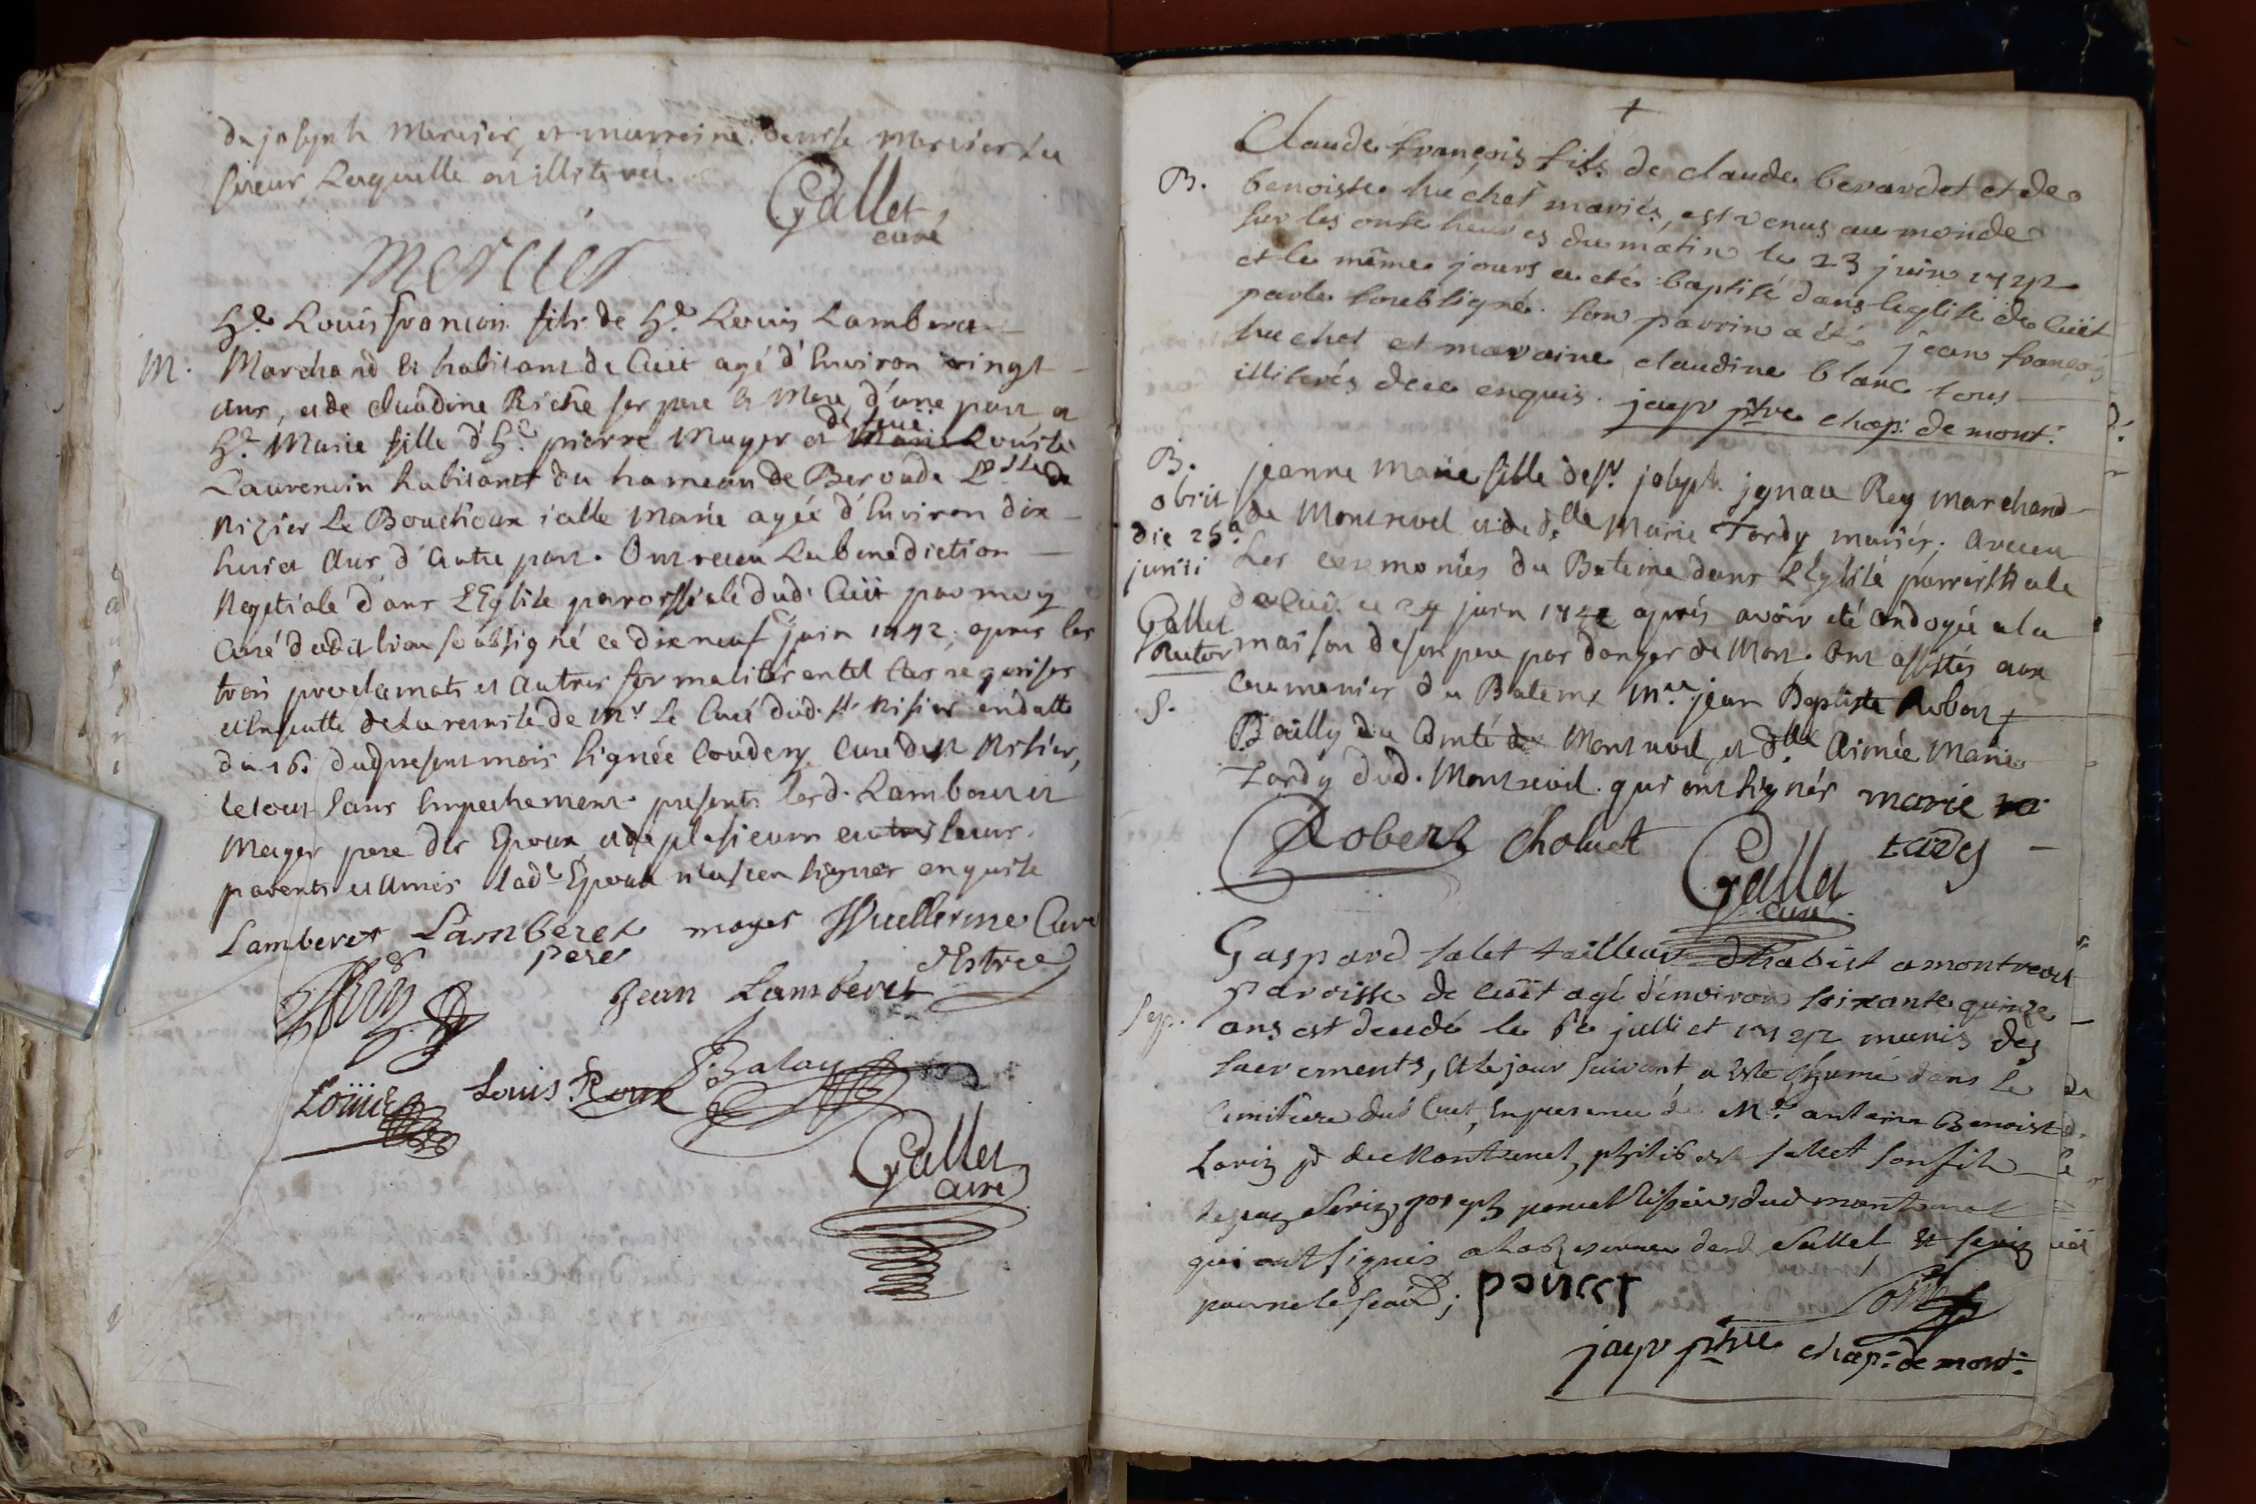 de joseph Mercier, et marreine denise Mercier sa
soeur Laquelle est illiterée
Gallet
curé
mercier
M.
h.e Louis françois fils de h.e Louis Lamberet
Marchand et habitant de Cuët agé d'Environ vingt
ans, et de claudine Riche ses pere et Mere d'une part et
h.e Marie fille d'h.e pierre Mayer et de feuë Marie Louïse
Laurencin habitant du hameau de Beroude P.sse de
Nizier Le Bouchoux icelle Marie agée d'Environ dix
huict Ans d'autre part. Ont receu La benediction
Nuptiale dans L'Eglise paroissiale dud. Cuët par moy
Curé dudit lieu soussigné ce dix neuf juin 1742, apres les
trois proclamats et autres formalités en tel cas requises
et Ensuitte de La remise de M.r Le Curé dud. St. Nisier en datte
du 16 du present mois signée Coudery Curé de St Nisier,
le tout sans Empechement presents lesd. Lamberet et
Mayer pere des Epoux et de plusieurs autres leurs
parents et Amis lad.e Epouse n'a sceu signer enquise
Lamberet Lamberet mayer Vuillerme Curé
pere d'Estree
Jean Lamberet
Louis Roux
Gallet
curé
B.
Claude françois fils de claude berardet et de
benoiste huchet mariés, est venus au monde
sur les onse heures du matin le 23 juin 1742
et le même jours a eté baptisé dans leglise de Cuët
par le soubsigné. son parrin a été jean françois
huchet et maraine claudine blanc tous
illiterés de ce enquis. jayr ptre chap: de mont:
B.
obiit
die 25a
junii
Gallet
Rector
S.
jeanne Marie fille de Sr. joseph ignace Rey marchand
de Montrevel et de d.lle Marie Tardy mariés; a receu
Les ceremonies du Bateme dans L'Eglise parroissiale
de Cuët ce 24 juin 1742 après avoir eté ondoyée a la
maison de son pere par danger de Mort. Ont assistés aux
Ceremonies du Bateme M.re jean Baptiste Robert
Bailly du Comté de Montrevel, et d.lle Aimée Marie
Tardy dud. Montrevel qui ont signés marie
tardy
Robert Choluet
Gallet
curé
Sep.
Gaspard salet tailleur d'habist a montrevel
paroisse de Cuët agé d'environ soixante quinze
ans est decedé le 6e julliet 1742 munis des
sacrements, et le jour suivant a esté inhumé dans le
Cimitiere dud Cuet, En presence de M.re antoine Benoist
Loriz de Montrevel, philibert sallet son fils
joseph poncet dud montrevel
qui ont signés a la reserve desd Sallet et
pour ne le scavoir;
poncet
jayr ptre chap: de mont: